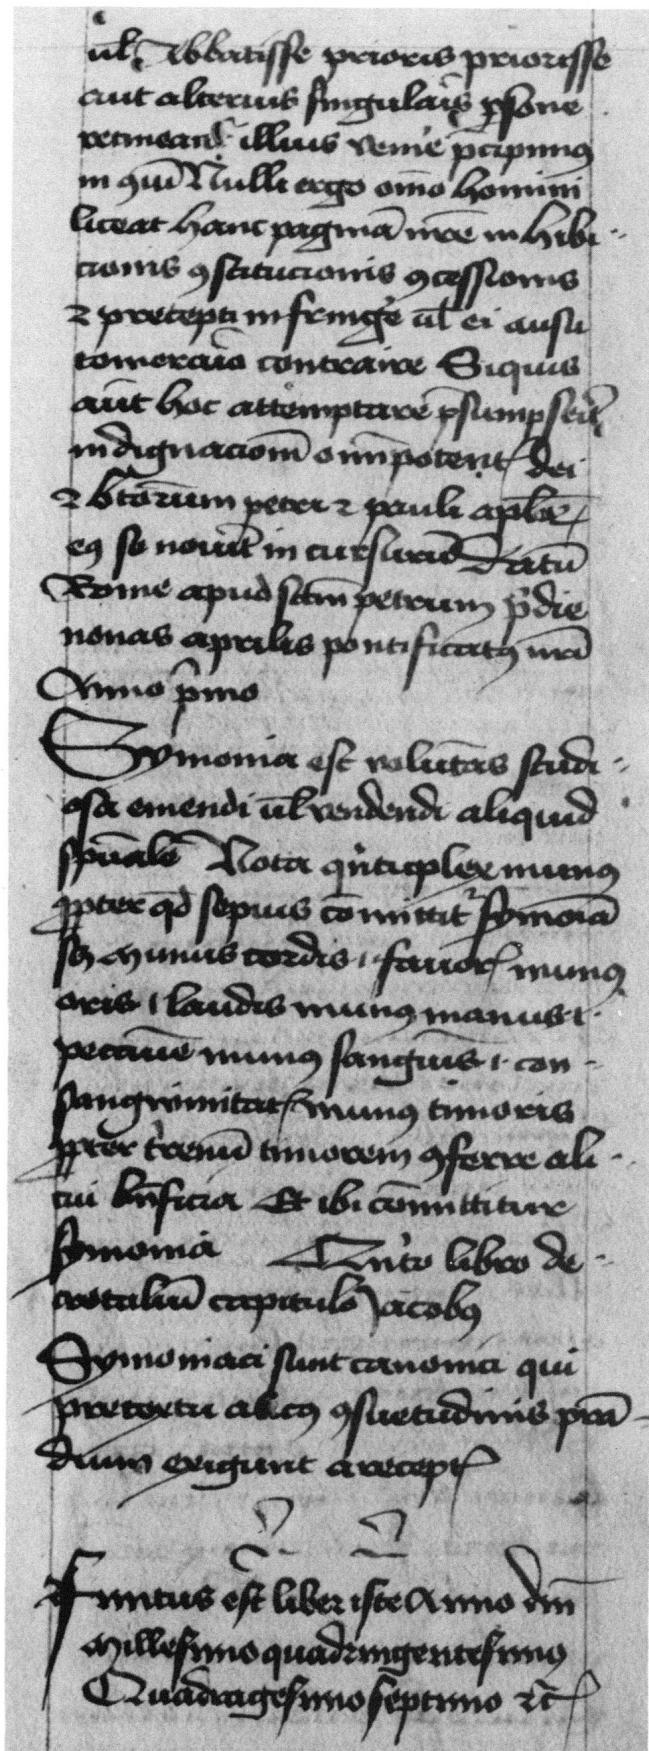 ul Abbatisse prioris priorisse
aut alterius singularis psone
illius venire pcipimus
Nulli ergo omo homini
liceat hanc pagina nre in hibi
cionis ɔstitucionis ɔcessionis
⁊ precepti infringe ul ei ausu
temerario contraire Siquis
aut hoc attemptare psumpserit
indignaciom omipotent dei
⁊ btorum petri ⁊ pauli aplor
eꝯ se noverit in cursurum Datu
Rome apud sctm petrum pdie
nonas aprilis pontificatꝯ nri
Anno pmo
Symonia est voluntas studi
osa emendi ul vendendi aliquid
spuale Nota qnticplex munus
ꝓpter qd sepius comittit symoia
sꝫ munus cordis .i. favor munꝯ
oris .i. laudis munꝯ manus .i.
peccunie munꝯ sanguis .i. con
sanguinitat munꝯ timoris
ꝓpter trenu timorem ɔferre ali
cui bnficia Et ibi comittitur
symonia Quito libro de
cretaliu capitulo Jacobꝯ
Symoniaci sunt canonici qui
pretextu alicꝯ ɔsuetudinis pra
dium exigunt a recept
Finitus est liber iste Anno dni
Millesimo quadringentesimo
Quadragesimo septimo ⁊c